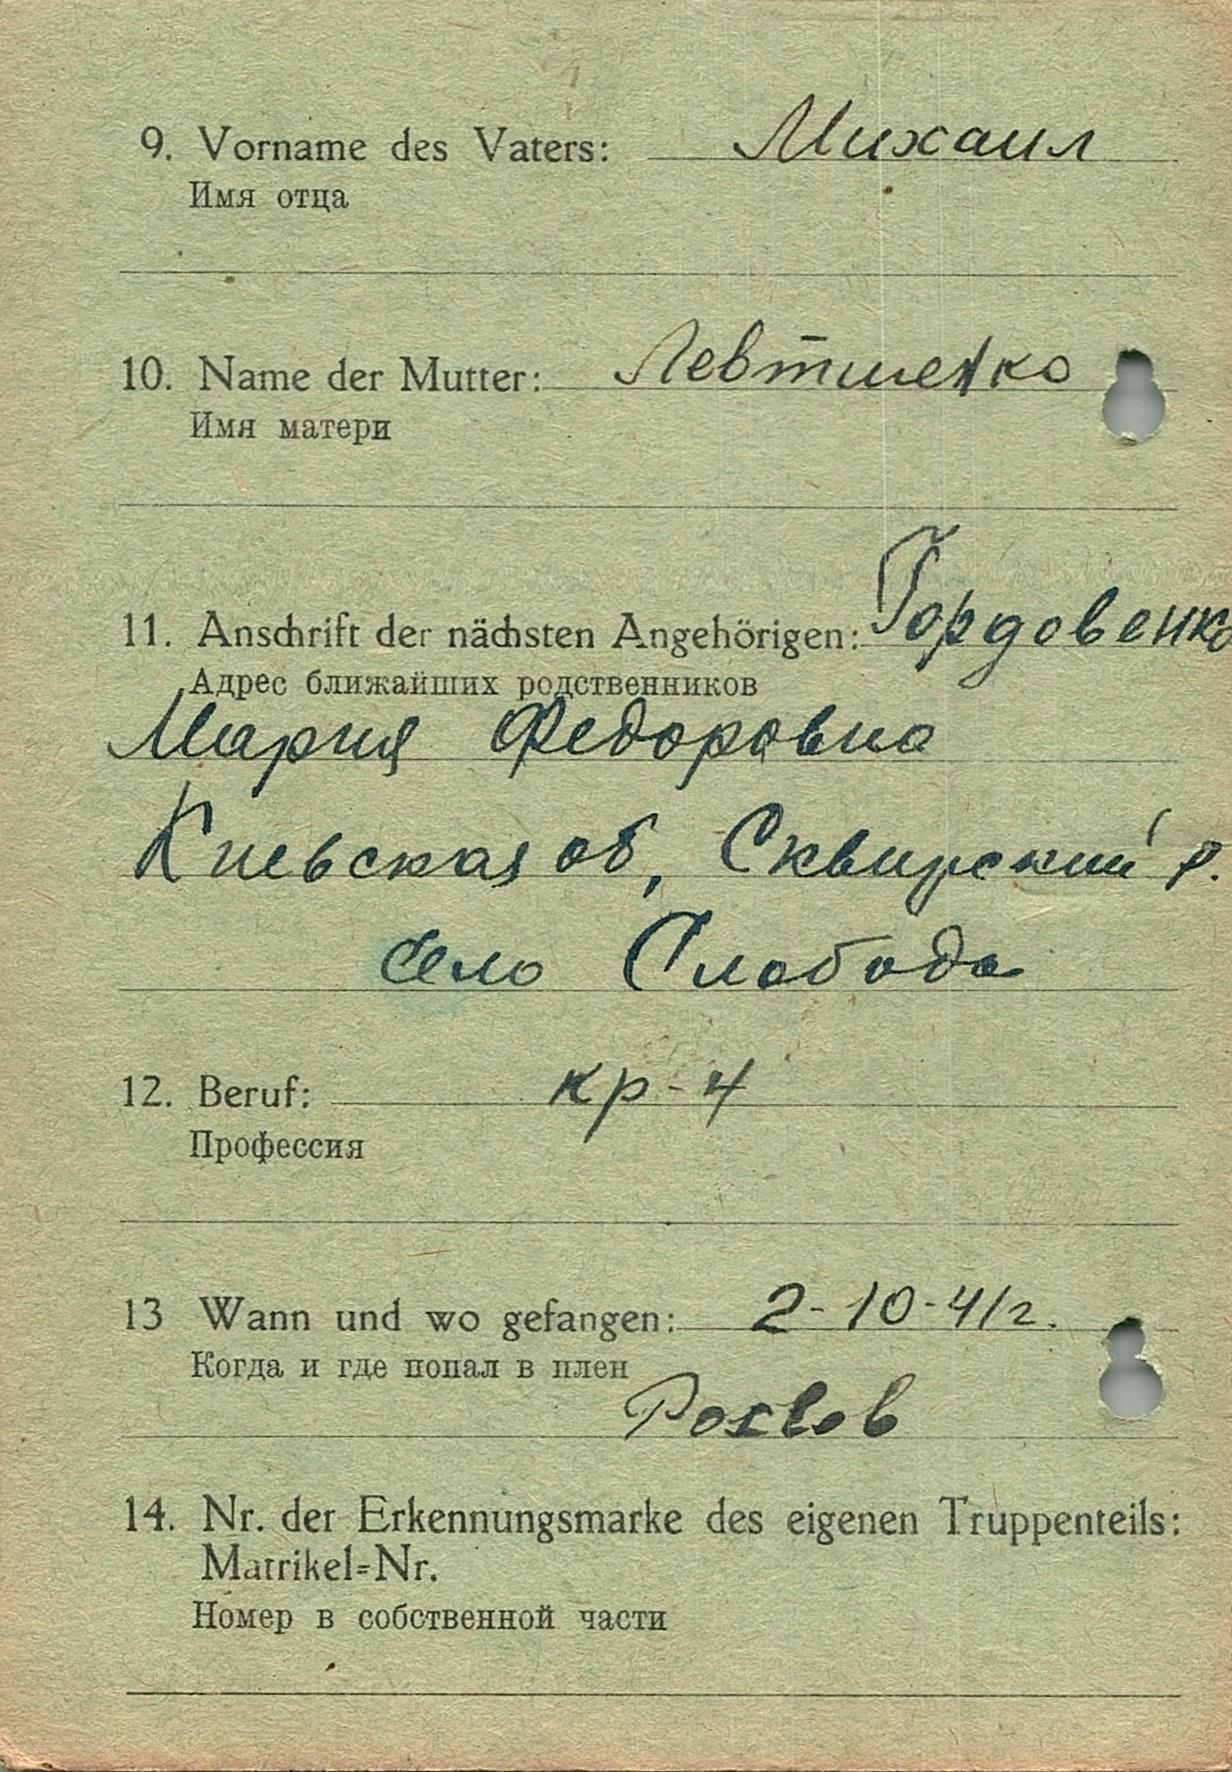 9. Vorname des Vaters: Михаил
Имя отца
10. Name der Mutter: Левтшенко
Имя матери
11. Anschrift der nächsten Angehörigen: Гордовенко
Адрес ближайших родственников
Мария Федоровна
Киевская об, Сквирский р.
село Слобода
12. Beruf: кр-4
Профессия
13 Wann und wo gefangen: 2-10-41г.
Когда и где попал в плен
14. Nr. der Erkennungsmarke des eigenen Truppenteils:
Matrikel=Nr.
Номер в собственной части